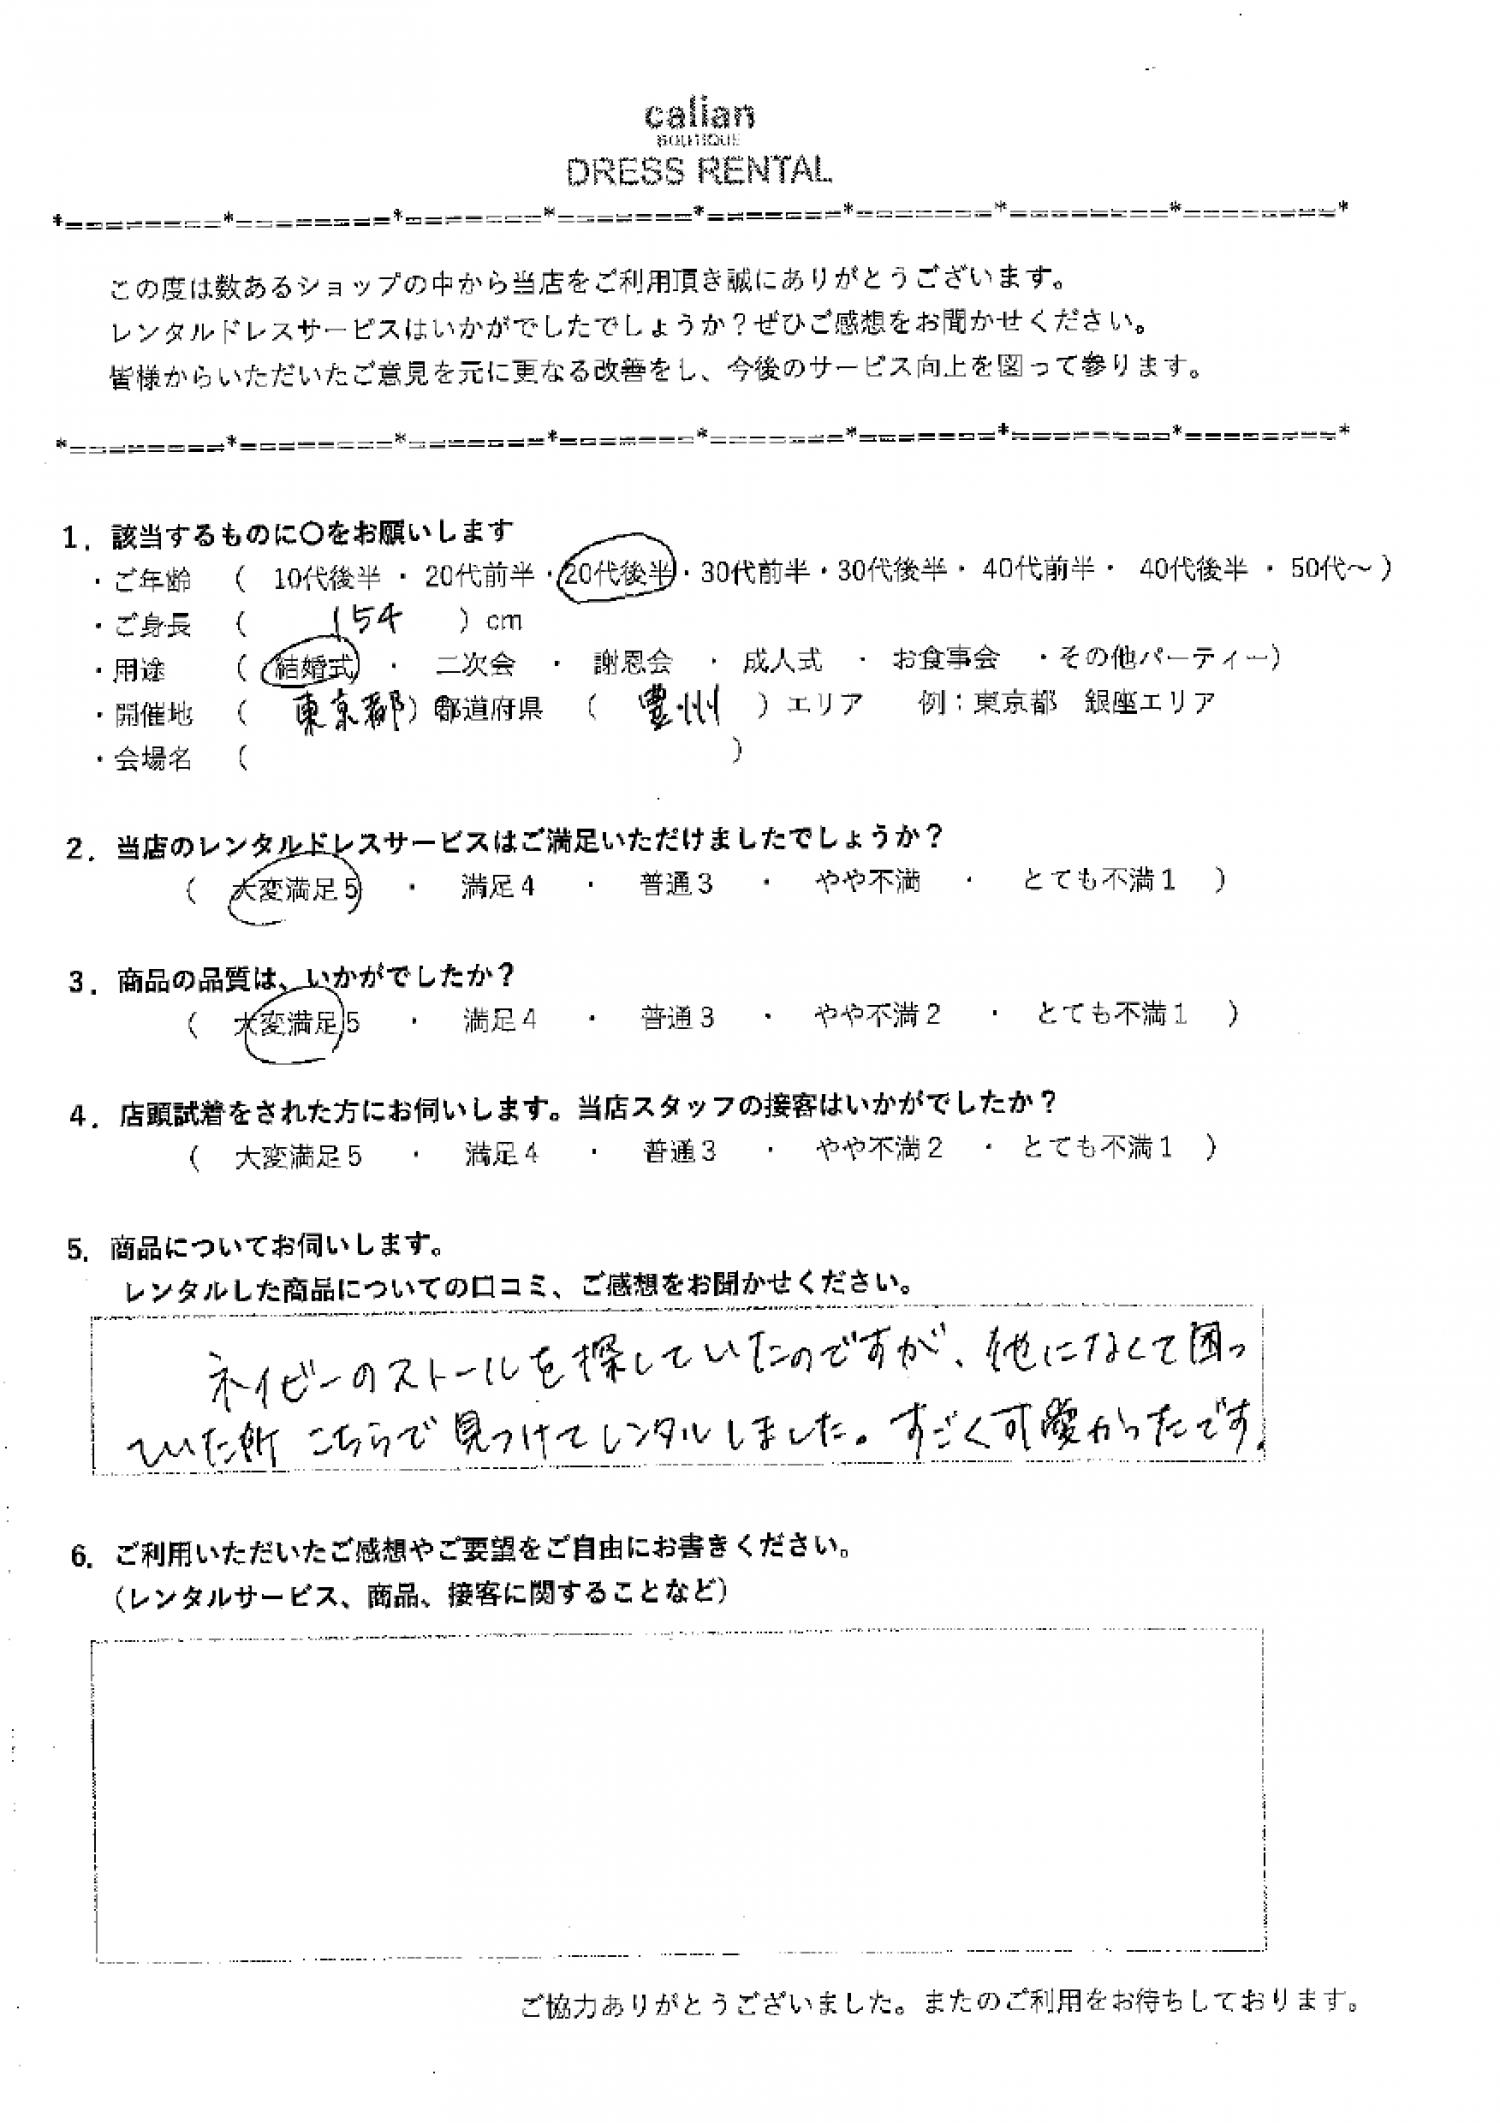 calian
BOUTIQUE
DRESS RENTAL
*========*========*=======*=======*=======*=======*========*========*
この度は数あるショップの中から当店をご利用頂き誠にありがとうございます。
レンタルドレスサービスはいかがでしたでしょうか？ぜひご感想をお聞かせください。
皆様からいただいたご意見を元に更なる改善をし、今後のサービス向上を図って参ります。
*========*========*=======*=======*=======*=======*========*========*
1．該当するものに〇をお願いします
・ご年齢 （ 10代後半 ・ 20代前半 ・ 20代後半 ・ 30代前半 ・ 30代後半 ・ 40代前半 ・ 40代後半 ・ 50代〜 ）
・ご身長 （ 154 ）cm
・用途 （ 結婚式 ・ 二次会 ・ 謝恩会 ・ 成人式 ・ お食事会 ・その他パーティー）
・開催地 （ 東京都 ）都道府県 （ 豊州 ）エリア 例：東京都 銀座エリア
・会場名 （ ）
2．当店のレンタルドレスサービスはご満足いただけましたでしょうか？
（ 大変満足５ ・ 満足４ ・ 普通３ ・ やや不満 ・ とても不満１ ）
3．商品の品質は、いかがでしたか？
（ 大変満足５ ・ 満足４ ・ 普通３ ・ やや不満２ ・ とても不満１ ）
4．店頭試着をされた方にお伺いします。当店スタッフの接客はいかがでしたか？
（ 大変満足５ ・ 満足４ ・ 普通３ ・ やや不満２ ・ とても不満１ ）
5．商品についてお伺いします。
レンタルした商品についての口コミ、ご感想をお聞かせください。
ネイビーのストールを探していたのですが、他になくて困っ
ていた所 こちらで見つけてレンタルしました。すごく可愛かったです。
6．ご利用いただいたご感想やご要望をご自由にお書きください。
（レンタルサービス、商品、接客に関することなど）
ご協力ありがとうございました。またのご利用をお待ちしております。